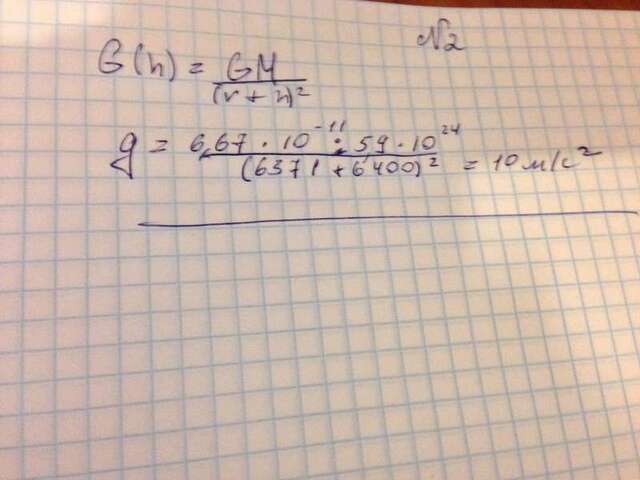 №2
G(h) = GM/(r + h)²
g = 6,67 · 10⁻¹¹ · 59 · 10²⁴/(6371 + 6400)² = 10 м/с²